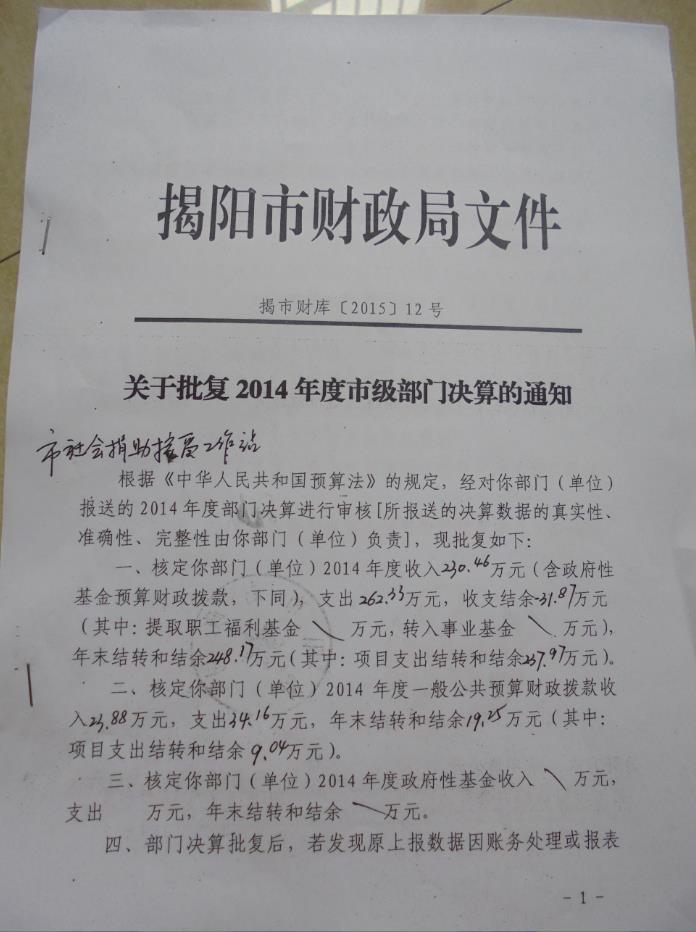 揭阳市财政局文件
揭市财库〔2015〕12号
关于批复2014年度市级部门决算的通知
市社会捐助接受工作站
根据《中华人民共和国预算法》的规定，经对你部门（单位）
报送的2014年度部门决算进行审核[所报送的决算数据的真实性、
准确性、完整性由你部门（单位）负责]，现批复如下：
一、核定你部门（单位）2014年度收入230.46万元（含政府性
基金预算财政拨款，下同），支出262.33万元，收支结余-31.87万元
（其中：提取职工福利基金\万元，转入事业基金\万元），
年末结转和结余248.17万元（其中：项目支出结转和结余237.97万元）。
二、核定你部门（单位）2014年度一般公共预算财政拨款收
入23.88万元，支出34.16万元，年末结转和结余19.25万元（其中：
项目支出结转和结余9.04万元）。
三、核定你部门（单位）2014年度政府性基金收入\万元，
支出 万元，年末结转和结余\万元。
四、部门决算批复后，若发现原上报数据因账务处理或报表
- 1 -